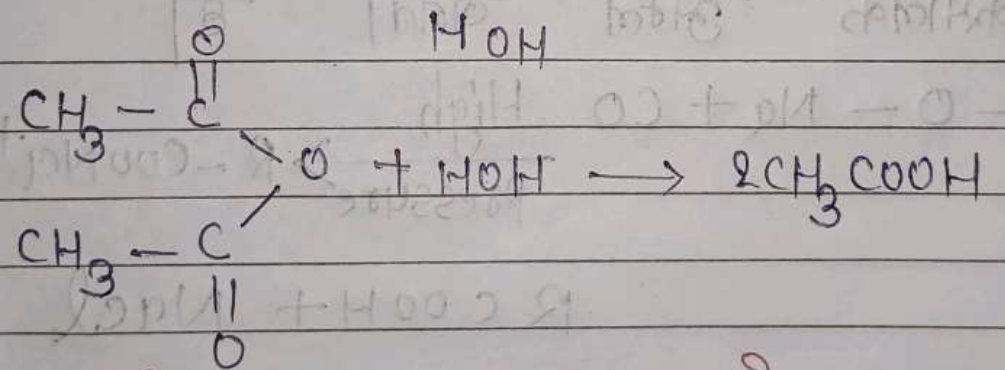 O HOH
CH3 - C
O + HOH → 2CH3COOH
CH3 - C
O